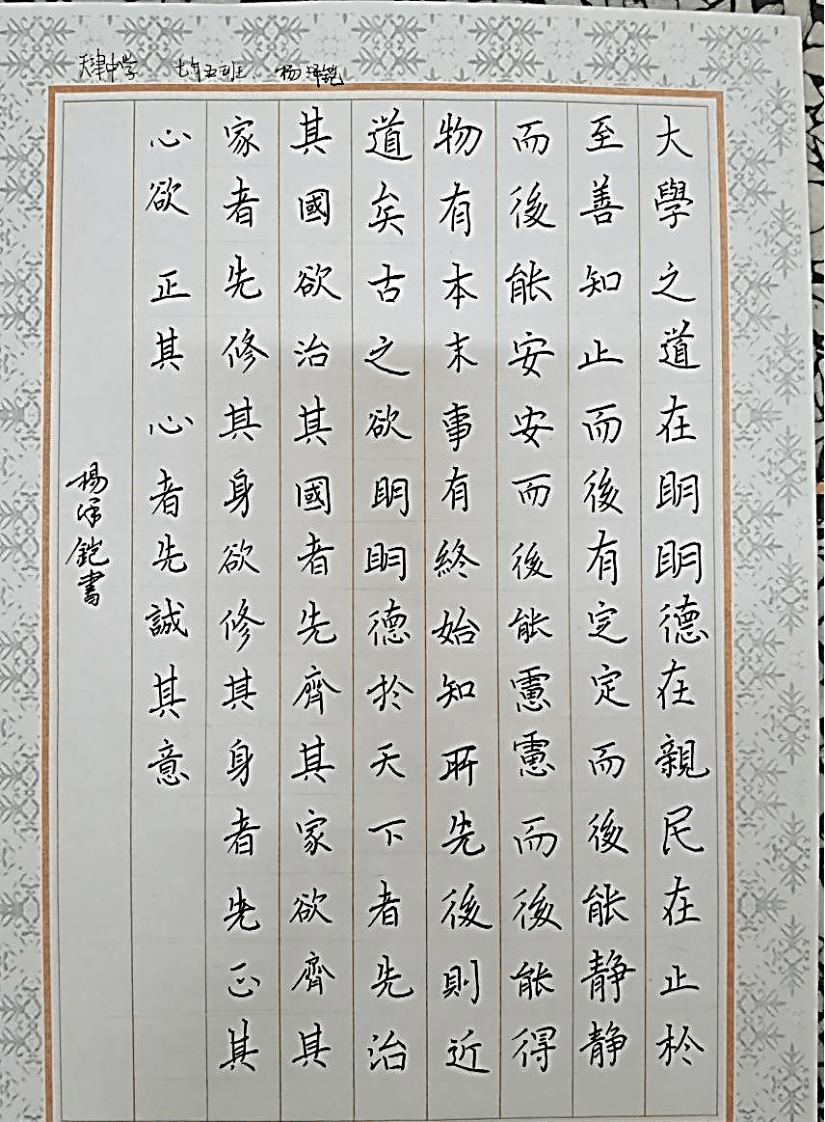 天津中学 七年五班 杨泽铠
大學之道在明明德在親民在止於
至善知止而後有定定而後能靜靜
而後能安安而後能慮慮而後能得
物有本末事有終始知所先後則近
道矣古之欲明明德於天下者先治
其國欲治其國者先齊其家欲齊其
家者先修其身欲修其身者先正其
心欲正其心者先誠其意
楊澤鎧書